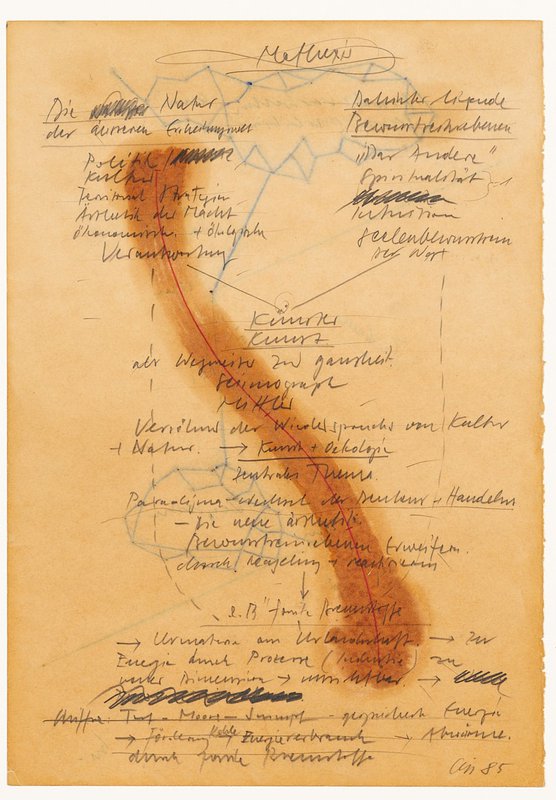 Die Natur
der äusseren
Dahinter liegende
Bewusstseinsebenen
Politik /
Kultur
Ästhetik der Macht
ökonomische + ökologische
Verantwortung
"Das Andere"
Spiritualität
Seelenbewusstsein
der Welt
Künstler
Kunst
als Wegweiser zur Ganzheit
Seismograph
Mittler
der von Kultur
+ Natur. → Kunst + Oekologie
Zentrales Thema.
Paradigma-wechsel des Denkens + Handelns
- die neue Ästhetik.
Bewusstseinsebenen erweitern.
durch recycling +
z.B. fossile Brennstoffe
→ Urmaterie aus Urlandschaft → zu
Energie durch Prozesse (Industrie) zu
neuer Dimension → unsichtbar. →
Torf - Moor - Sumpf - gespeicherte Energie
→ Kohle Energieverbrauch → Abwärme.
durch fossile Brennstoffe
85